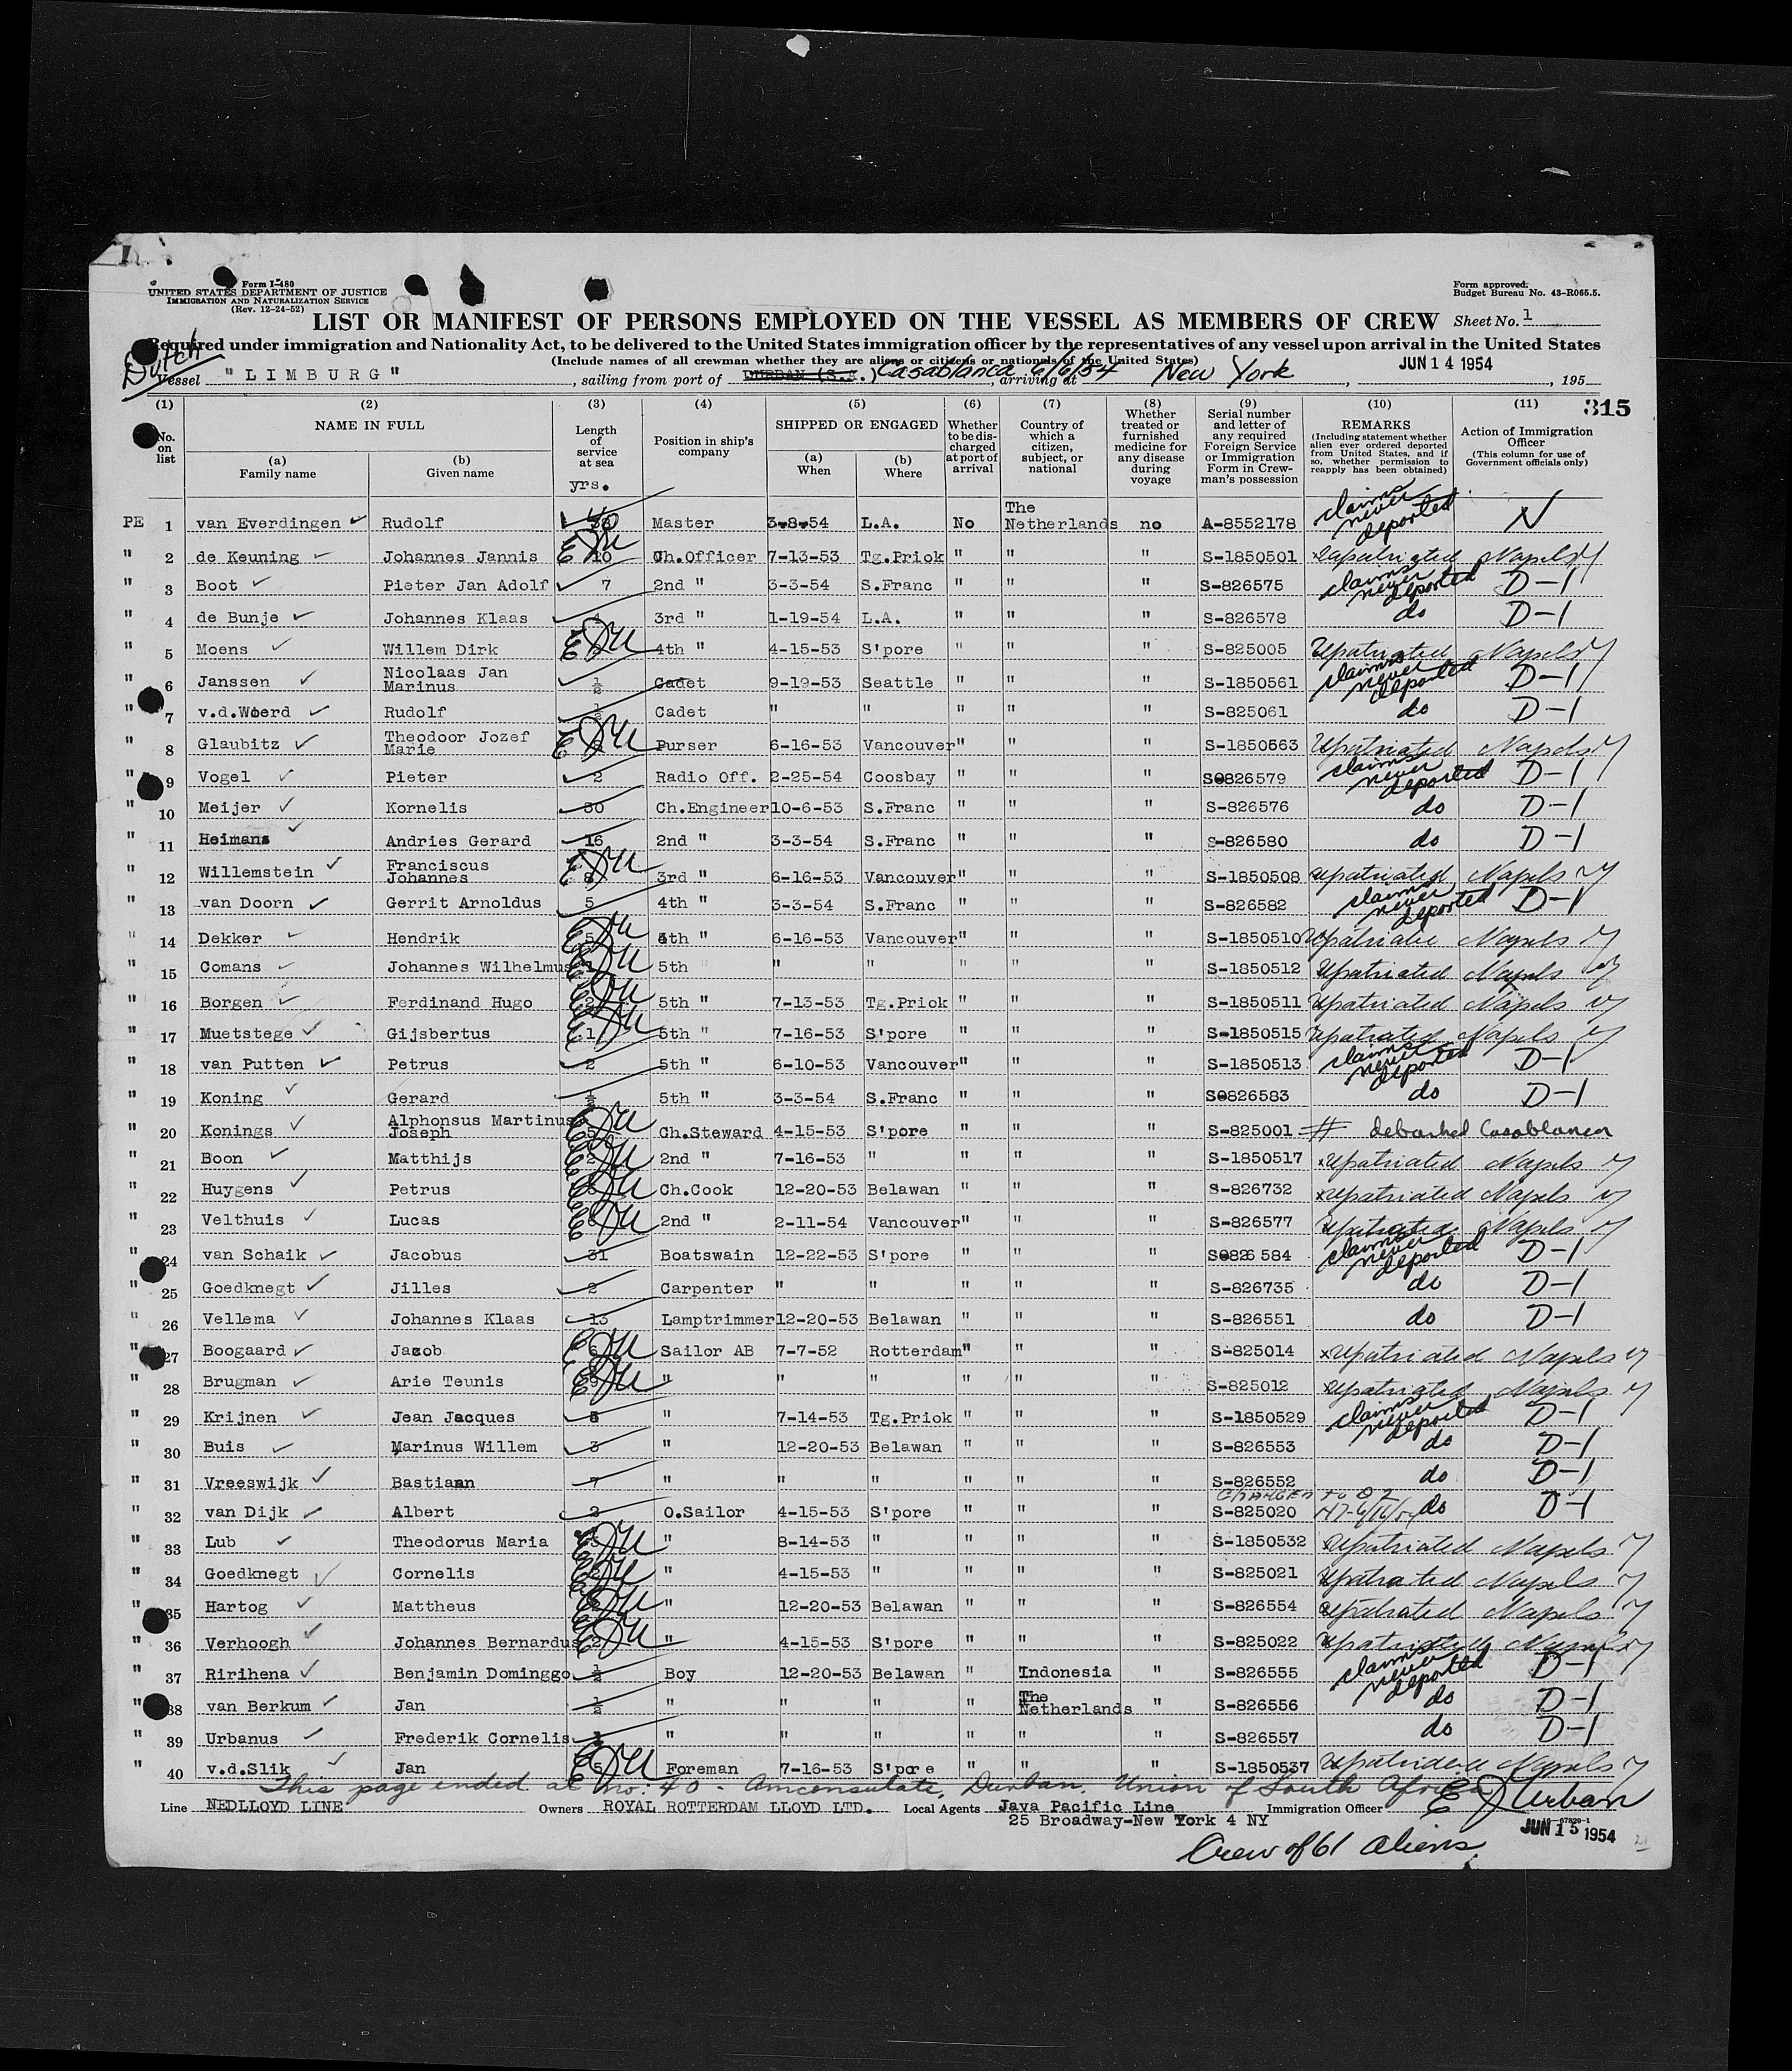 Form I-480
UNITED STATES DEPARTMENT OF JUSTICE
IMMIGRATION AND NATURALIZATION SERVICE
(Rev. 12-24-52)
Form approved.
Budget Bureau No. 43-R065.5.
LIST OR MANIFEST OF PERSONS EMPLOYED ON THE VESSEL AS MEMBERS OF CREW Sheet No. 1
Required under immigration and Nationality Act, to be delivered to the United States immigration officer by the representatives of any vessel upon arrival in the United States
(Include names of all crewman whether they are aliens or citizens or nationals of the United States)
Dutch
Vessel "LIMBURG", sailing from port of DURBAN (S.A.) Casablanca 6/6/54, arriving at New York, JUN 14 1954, 195
315
(1) (2) (3) (4) (5) (6) (7) (8) (9) (10) (11)
No. on list NAME IN FULL Length of service at sea Position in ship's company SHIPPED OR ENGAGED Whether to be discharged at port of arrival Country of which a citizen, subject, or national Whether treated or furnished medicine for any disease during voyage Serial number and letter of any required Foreign Service or Immigration Form in Crewman's possession REMARKS (Including statement whether alien ever ordered deported from United States, and if so, whether permission to reapply has been obtained) Action of Immigration Officer (This column for use of Government officials only)
(a) Family name (b) Given name yrs. (a) When (b) Where
PE 1 van Everdingen Rudolf Master 3-8-54 L.A. No The Netherlands no A-8552178 claims never deported
" 2 de Keuning Johannes Jannis 10 Ch.Officer 7-13-53 Tg.Priok " " " S-1850501 repatriated Napels
" 3 Boot Pieter Jan Adolf 7 2nd " 3-3-54 S.Franc " " " S-826575 claims never deported D-1
" 4 de Bunje Johannes Klaas 4 3rd " 1-19-54 L.A. " " " S-826578 do D-1
" 5 Moens Willem Dirk 4th " 4-15-53 S'pore " " " S-825005 repatriated Napels
" 6 Janssen Nicolaas Jan Marinus ½ Cadet 9-19-53 Seattle " " " S-1850561 claims never deported D-1
" 7 v.d.Woerd Rudolf ½ Cadet " " " " " S-825061 do D-1
" 8 Glaubitz Theodoor Jozef Marie Purser 6-16-53 Vancouver " " " S-1850563 repatriated Napels
" 9 Vogel Pieter 2 Radio Off. 2-25-54 Coosbay " " " S0826579 claims never deported D-1
" 10 Meijer Kornelis 30 Ch.Engineer 10-6-53 S.Franc " " " S-826576 do D-1
" 11 Heimans Andries Gerard 16 2nd " 3-3-54 S.Franc " " " S-826580 do D-1
" 12 Willemstein Franciscus Johannes 8 3rd " 6-16-53 Vancouver " " " S-1850508 repatriated Napels
" 13 van Doorn Gerrit Arnoldus 5 4th " 3-3-54 S.Franc " " " S-826582 claims never deported D-1
" 14 Dekker Hendrik 5 4th " 6-16-53 Vancouver " " " S-1850510 repatriated Napels
" 15 Comans Johannes Wilhelmus 5th " " " " " " S-1850512 repatriated Napels
" 16 Borgen Ferdinand Hugo 2 5th " 7-13-53 Tg.Priok " " " S-1850511 repatriated Napels
" 17 Muetstege Gijsbertus 1 5th " 7-16-53 S'pore " " " S-1850515 repatriated Napels
" 18 van Putten Petrus 2 5th " 6-10-53 Vancouver " " " S-1850513 claims never deported D-1
" 19 Koning Gerard ½ 5th " 3-3-54 S.Franc " " " S0826583 do D-1
" 20 Konings Alphonsus Martinus Joseph 5 Ch.Steward 4-15-53 S'pore " " " S-825001 # debarked Casablanca
" 21 Boon Matthijs 2 2nd " 7-16-53 " " " " S-1850517 repatriated Napels
" 22 Huygens Petrus Ch.Cook 12-20-53 Belawan " " " S-826732 repatriated Napels
" 23 Velthuis Lucas 2nd " 2-11-54 Vancouver " " " S-826577 repatriated Napels
" 24 van Schaik Jacobus 31 Boatswain 12-22-53 S'pore " " " S0826584 claims never deported D-1
" 25 Goedknegt Jilles 2 Carpenter " " " " " S-826735 do D-1
" 26 Vellema Johannes Klaas 13 Lamptrimmer 12-20-53 Belawan " " " S-826551 do D-1
" 27 Boogaard Jacob 6 Sailor AB 7-7-52 Rotterdam " " " S-825014 repatriated Napels
" 28 Brugman Arie Teunis 9 " " " " " " S-825012 repatriated Napels
" 29 Krijnen Jean Jacques " 7-14-53 Tg.Priok " " " S-1850529 claims never deported D-1
" 30 Buis Marinus Willem 3 " 12-20-53 Belawan " " " S-826553 do D-1
" 31 Vreeswijk Bastiaan 7 " " " " " " S-826552 do D-1
" 32 van Dijk Albert 2 O.Sailor 4-15-53 S'pore " " " S-825020 CHANGED to do D-1
" 33 Lub Theodorus Maria " 8-14-53 " " " " S-1850532 repatriated Napels
" 34 Goedknegt Cornelis " 4-15-53 " " " " S-825021 repatriated Napels
" 35 Hartog Mattheus " 12-20-53 Belawan " " " S-826554 repatriated Napels
" 36 Verhoogh Johannes Bernardus 2 " 4-15-53 S'pore " " " S-825022 repatriated Napels
" 37 Ririhena Benjamin Dominggo ½ Boy 12-20-53 Belawan " Indonesia " S-826555 claims never deported D-1
" 38 van Berkum Jan ½ " " " " The Netherlands " S-826556 do D-1
" 39 Urbanus Frederik Cornelis " " " " " " S-826557 do D-1
" 40 v.d.Slik Jan 5 Foreman 7-16-53 S'pore " " " S-1850537 repatriated Napels
This page ended at no. 40 - Amconsulate, Durban, Union of South Africa
Line NEDLLOYD LINE Owners ROYAL ROTTERDAM LLOYD LTD. Local Agents Java Pacific Line Immigration Officer E J Urban
25 Broadway-New York 4 NY
JUN 15 1954
Crew of 61 aliens.